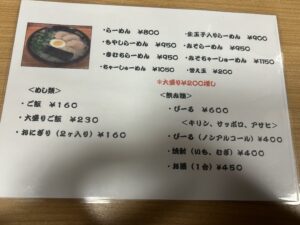 ・らーめん ¥800
・もやしらーめん ¥950
・きむちらーめん ¥950
・ちゃーしゅーめん ¥1050
・生玉子入りらーめん ¥900
・みそらーめん ¥950
・みそちゃーしゅーめん ¥1150
・替え玉 ¥200
*大盛り¥200増し
<めし類>
・ご飯 ¥160
・大盛りご飯 ¥230
・おにぎり(2ヶ入り) ¥160
<飲み類>
・びーる ¥600
<キリン、サッポロ、アサヒ>
・びーる(ノンアルコール) ¥400
・焼酎(いも、むぎ) ¥400
・お酒(1合) ¥450